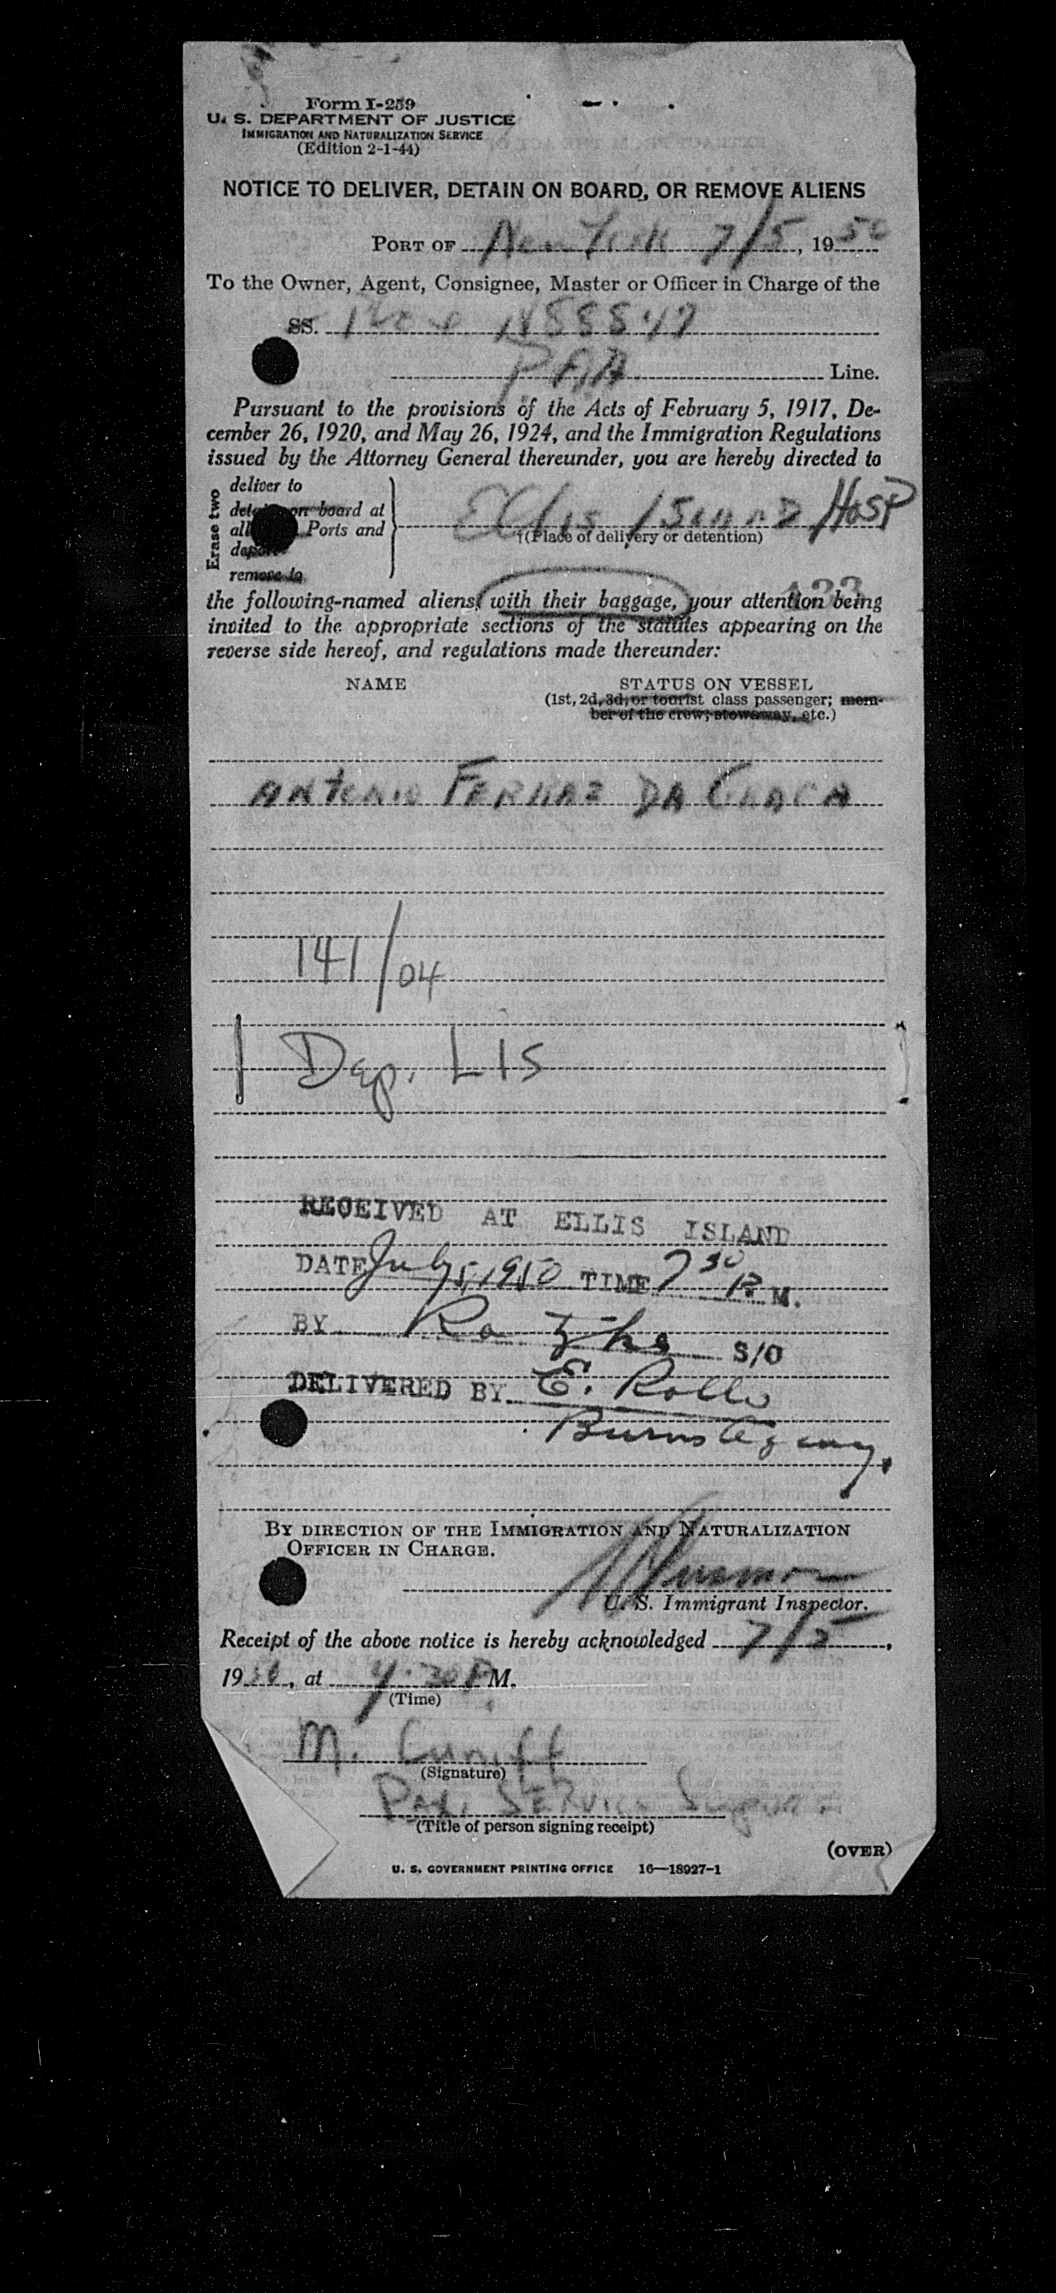 Form I-259
U. S. DEPARTMENT OF JUSTICE
IMMIGRATION AND NATURALIZATION SERVICE
(Edition 2-1-44)
NOTICE TO DELIVER, DETAIN ON BOARD, OR REMOVE ALIENS
PORT OF New York 7/5, 1950
To the Owner, Agent, Consignee, Master or Officer in Charge of the
SS.
PAA Line.
Pursuant to the provisions of the Acts of February 5, 1917, De-
cember 26, 1920, and May 26, 1924, and the Immigration Regulations
issued by the Attorney General thereunder, you are hereby directed to
Erase two
deliver to
detain on board at
all Ports and
remove to
Ellis Island Hosp
†(Place of delivery or detention)
433
the following-named aliens, with their baggage, your attention being
invited to the appropriate sections of the statutes appearing on the
reverse side hereof, and regulations made thereunder:
NAME STATUS ON VESSEL
(1st, 2d, 3d, or tourist class passenger; mem-
ber of the crew; stowaway, etc.)
ANTONIO FERRAZ DA
141/04
Dep. LIS
RECEIVED AT ELLIS ISLAND
DATE July 5, 1950 TIME 7 30 P. M.
BY S/O
DELIVERED BY E. Rollo
Burns Agency.
BY DIRECTION OF THE IMMIGRATION AND NATURALIZATION
OFFICER IN CHARGE.
U. S. Immigrant Inspector.
Receipt of the above notice is hereby acknowledged 7/5,
1950, at P M.
(Time)
M. Cuniff
(Signature)
Pax. Service
(Title of person signing receipt)
(OVER)
U. S. GOVERNMENT PRINTING OFFICE 16—18927-1